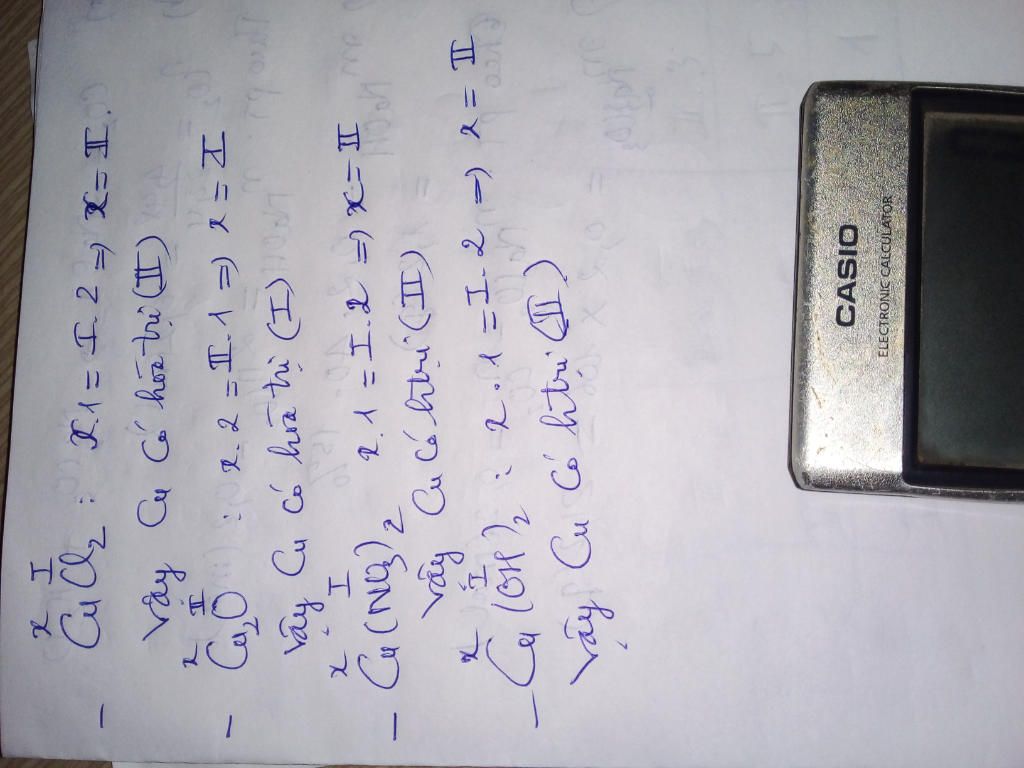 x I
- CuCl2 : x.1 = I.2 => x = II.
Vậy Cu có hoá trị (II)
x II
- Cu2O : x.2 = II.1 => x = I
Vậy Cu có hoá trị (I)
x I
- Cu(NO3)2 x.1 = I.2 => x = II
Vậy Cu có htrị (II)
x I
- Cu(OH)2 : x.1 = I.2 => x = II
Vậy Cu có htrị (II)
CASIO
ELECTRONIC CALCULATOR